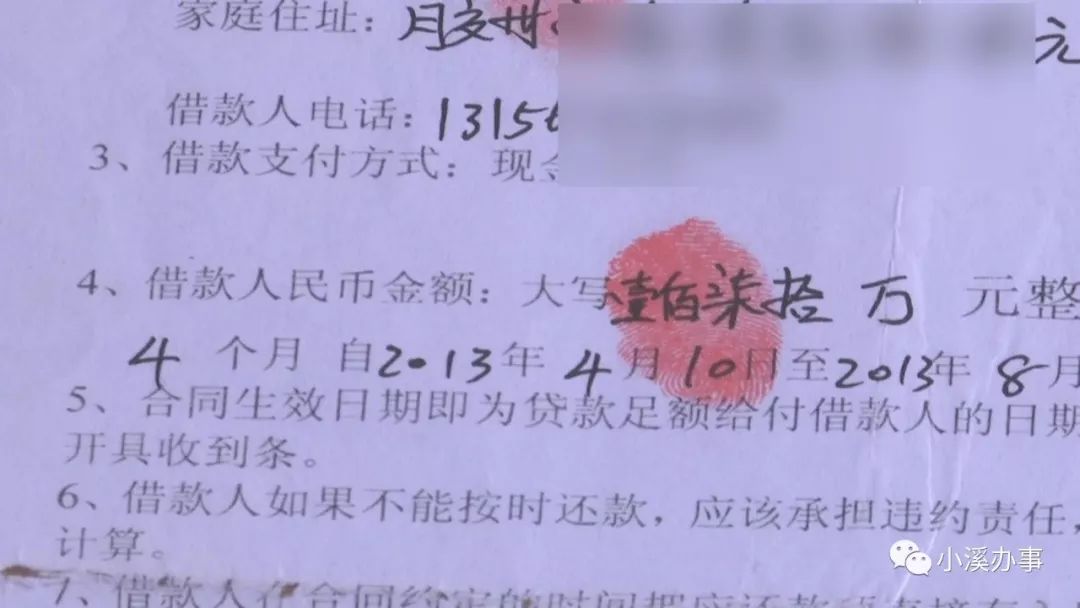 家庭住址：
元
借款人电话：1315
3、借款支付方式：现金
4、借款人民币金额：大写壹佰柒拾 万 元整
4 个月 自2013年 4月 10日至2013年 8月
5、合同生效日期即为贷款足额给付借款人的日期
开具收到条。
6、借款人如果不能按时还款，应该承担违约责任，
计算。
7、借款人在合同约定的时间把应还款
小溪办事